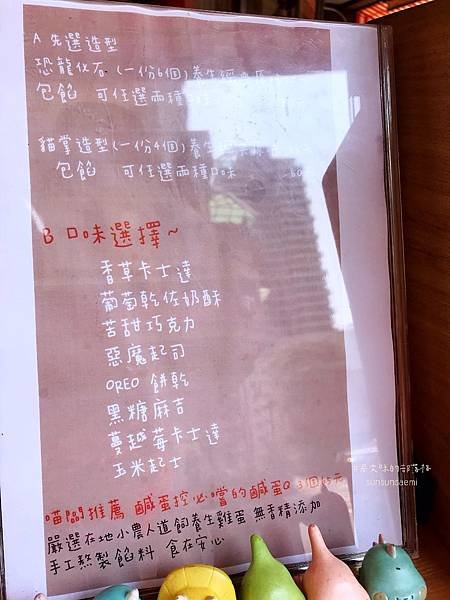 A 先選造型
恐龍化石 (一份6個) 養生
包餡 可任選兩種
貓掌造型 (一份4個) 養生
包餡 可任選兩種口味
B 口味選擇~
香草卡士達
葡萄乾佐奶酥
苦甜巧克力
惡魔起司
OREO 餅乾
黑糖麻吉
蔓越莓卡士達
玉米起士
喵闆推薦 鹹蛋控必嚐的鹹蛋Q 3個
嚴選在地小農人道飼養生雞蛋 無香精添加
手工熬製餡料 食在安心
的部落格
sunsundaemi